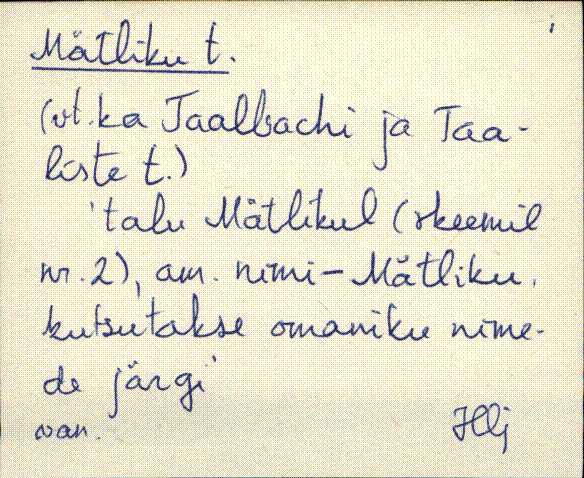 Mätliku t.
(vt. ka Taalbachi ja Taa-
liste t.)
'talu Mätlikul (skeemil
nr. 2), am. nimi - Mätliku,
kutsutakse omaniku nime-
de järgi'
van. Hlj